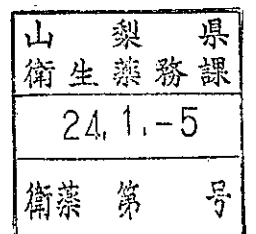 山梨県
衛生薬務課
24.1.-5
衛薬第 号